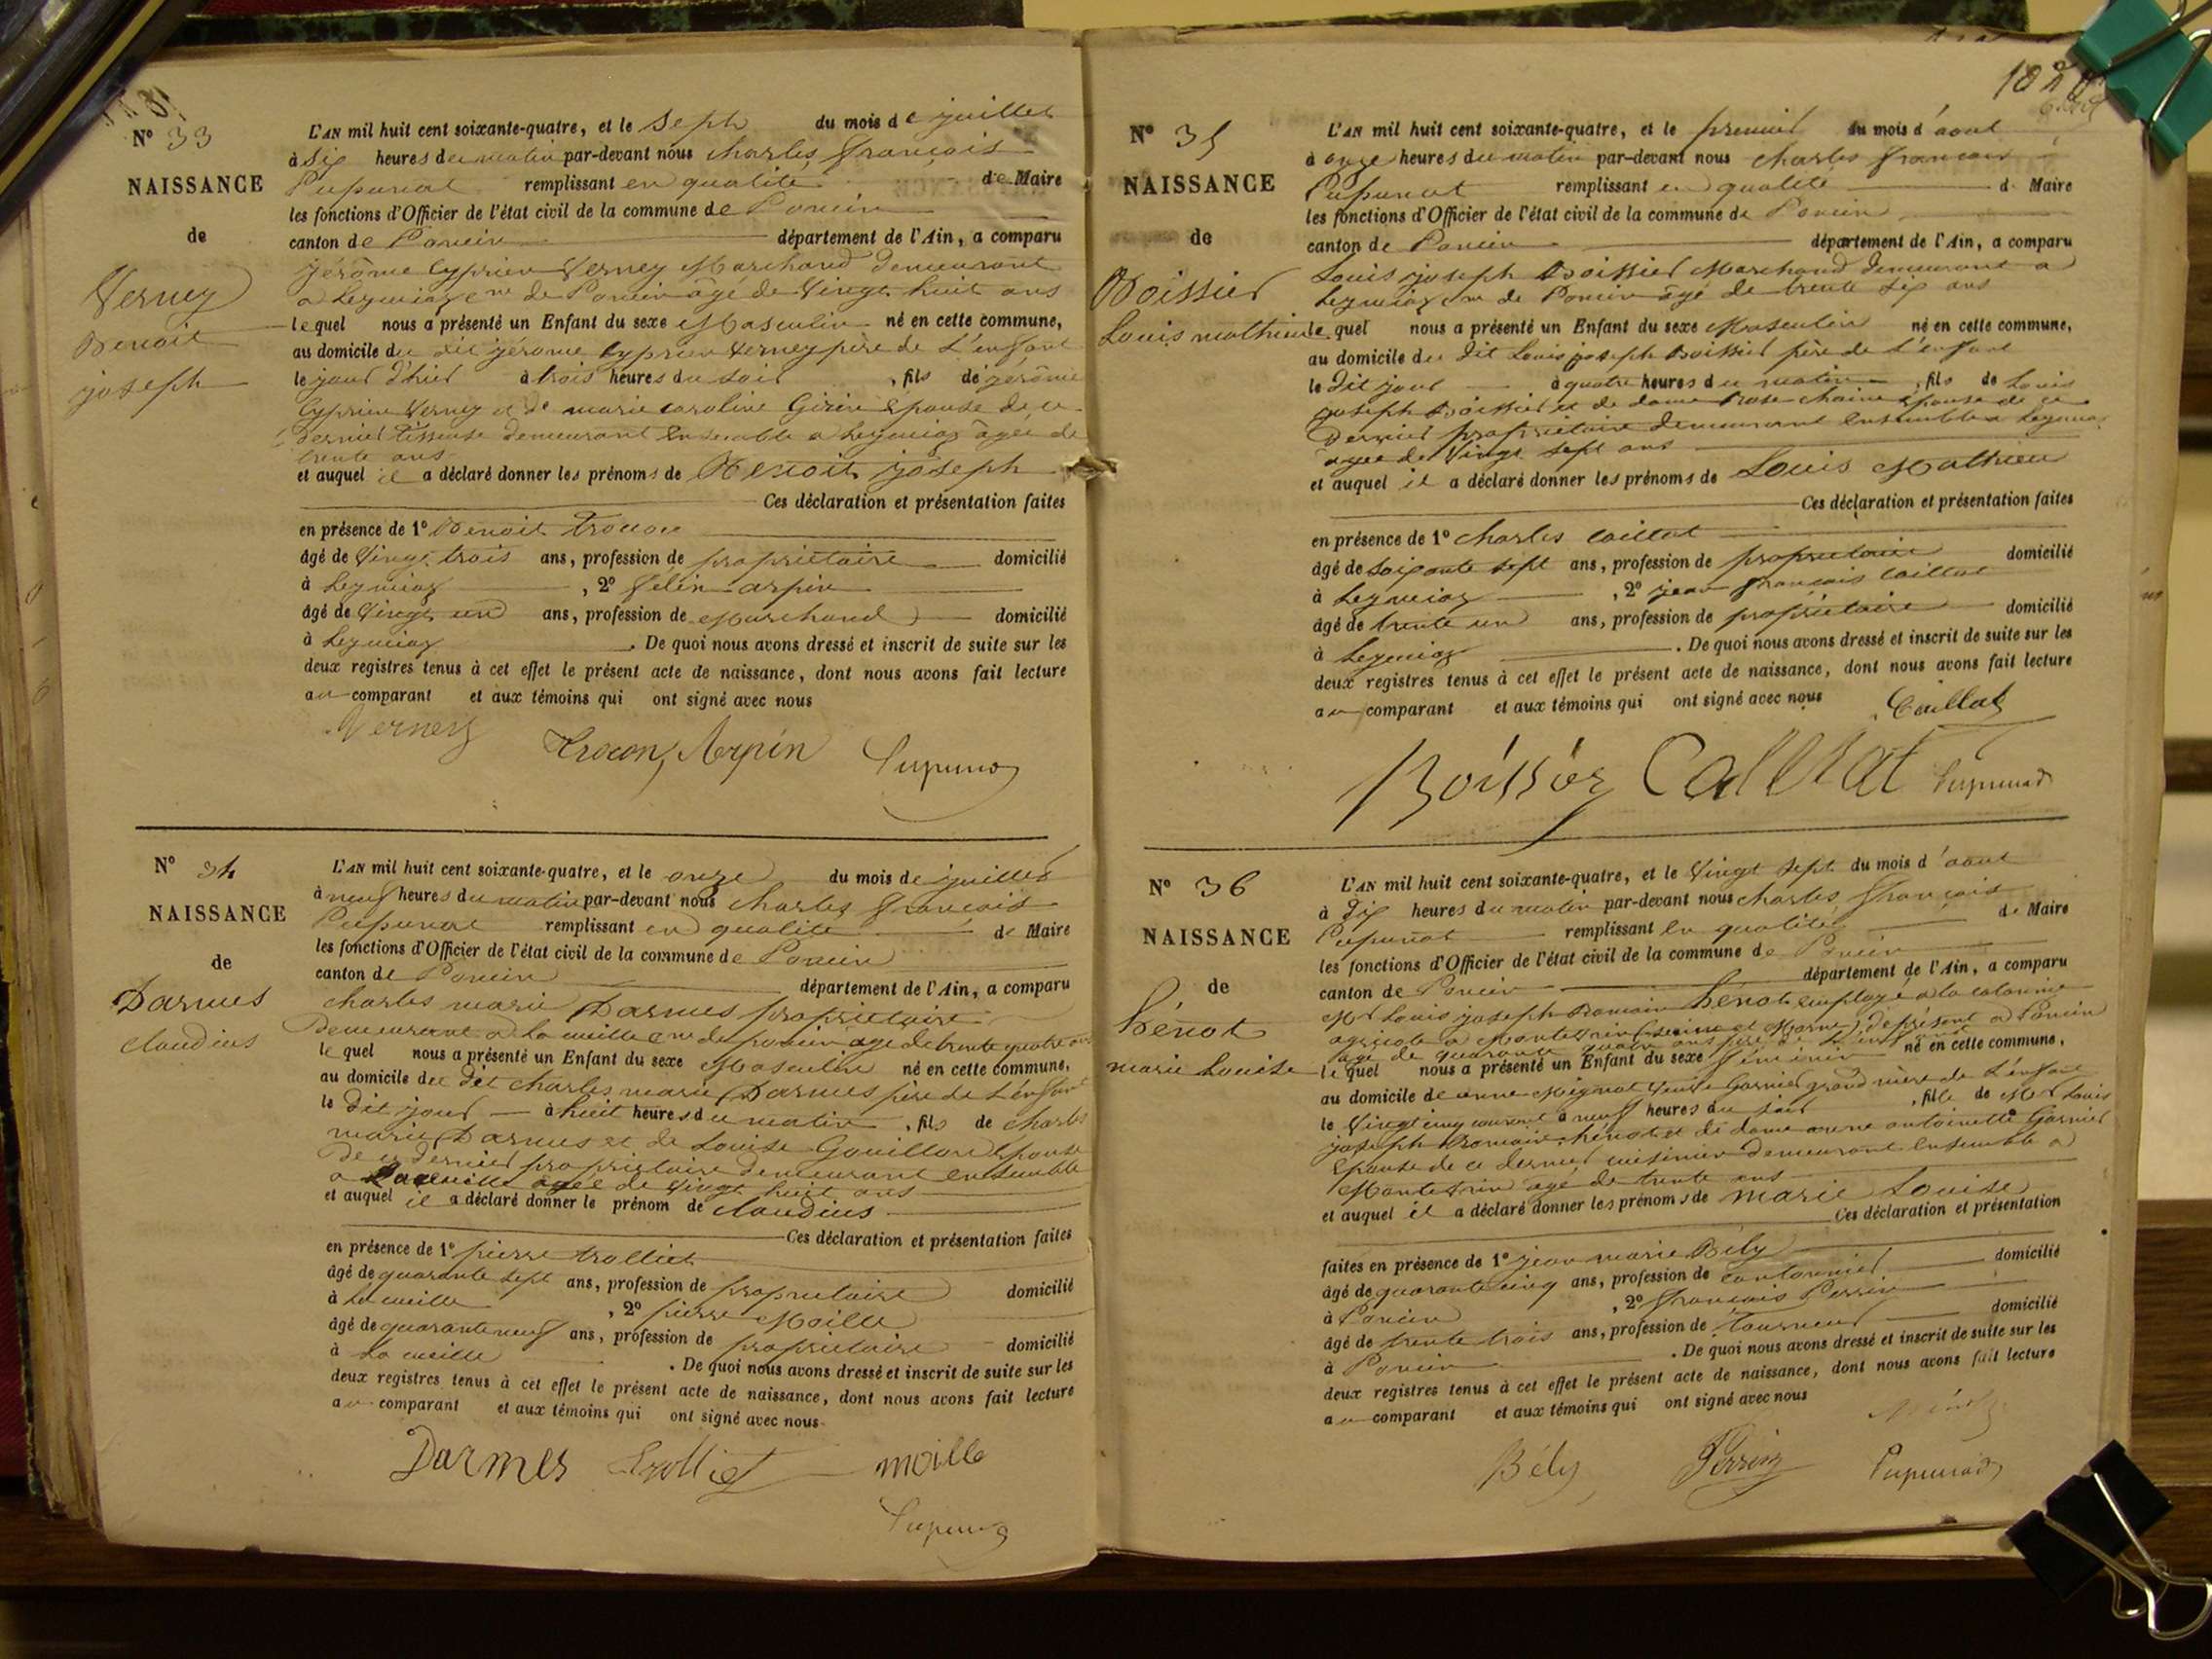 N° 33
NAISSANCE
de
Verney
Benoit
joseph
L'AN mil huit cent soixante-quatre, et le Sept du mois de juillet
à Six heures du matin par-devant nous charles françois
Pupunat remplissant en qualité de Maire
les fonctions d'Officier de l'état civil de la commune de Poncin
canton de Poncin département de l'Ain, a comparu
jérôme Cyprien Verney Marchand demeurant
a Leymiaz cne de Poncin âgé de Vingt huit ans
lequel nous a présenté un Enfant du sexe Masculin né en cette commune,
au domicile du dit jérome Cyprien Verney père de L'enfant
le jour d'hier à trois heures du soir, fils de jérôme
Cyprien Verney et de marie caroline Girin Epouse de ce
dernier tisseuse demeurant Ensemble a Leymiaz âgée de
trente ans
et auquel il a déclaré donner les prénoms de Benoit joseph
Ces déclaration et présentation faites
en présence de 1° Benoit Trocon
âgé de Vingt trois ans, profession de propriétaire domicilié
à Leymiaz, 2° félix arpin
âgé de Vingt un ans, profession de Marchand domicilié
à Leymiaz. De quoi nous avons dressé et inscrit de suite sur les
deux registres tenus à cet effet le présent acte de naissance, dont nous avons fait lecture
au comparant et aux témoins qui ont signé avec nous
Verney Trocon Arpin Pupunat
N° 34
NAISSANCE
de
Darmes
claudius
L'AN mil huit cent soixante-quatre, et le onze du mois de juillet
à neuf heures du matin par-devant nous charles françois
Pupunat remplissant en qualité de Maire
les fonctions d'Officier de l'état civil de la commune de Poncin
canton de Poncin département de l'Ain, a comparu
charles marie Darmes propriétaire
Demeurant a la cueille cne de poncin âgé de trente quatre ans
lequel nous a présenté un Enfant du sexe Masculin né en cette commune,
au domicile du dit charles marie Darmes père de L'enfant
le dit jour à huit heures du matin, fils de charles
marie Darmes et de Louise Gouillon Epouse
de ce dernier propriétaire demeurant ensemble
a La cueille agée de Vingt huit ans
et auquel il a déclaré donner le prénom de claudius
Ces déclaration et présentation faites
en présence de 1° pierre trolliet
âgé de quarante sept ans, profession de propriétaire domicilié
à La cueille, 2° pierre Moille
âgé de quarante neuf ans, profession de propriétaire domicilié
à La cueille. De quoi nous avons dressé et inscrit de suite sur les
deux registres tenus à cet effet le présent acte de naissance, dont nous avons fait lecture
au comparant et aux témoins qui ont signé avec nous
Darmes Trolliet moille
Pupunat
N° 35
NAISSANCE
de
Boissier
Louis mathieu
L'AN mil huit cent soixante-quatre, et le premier du mois d'aout
à onze heures du matin par-devant nous charles françois
Pupunat remplissant en qualité de Maire
les fonctions d'Officier de l'état civil de la commune de Poncin
canton de Poncin département de l'Ain, a comparu
Louis joseph Boissier Marchand demeurant a
Leymiaz cne de Poncin âgé de trente six ans
lequel nous a présenté un Enfant du sexe Masculin né en cette commune,
au domicile du dit Louis joseph Boissier père de L'enfant
le dit jour à quatre heures du matin, fils de Louis
joseph Boissier et de dame rose chaine Epouse de ce
Dernier propriétaire demeurant Ensemble a Leymiaz
agée de Vingt sept ans
et auquel il a déclaré donner les prénoms de Louis Mathieu
Ces déclaration et présentation faites
en présence de 1° charles caillat
âgé de soixante sept ans, profession de propriétaire domicilié
à Leymiaz, 2° jean françois caillat
âgé de trente un ans, profession de propriétaire domicilié
à Leymiaz. De quoi nous avons dressé et inscrit de suite sur les
deux registres tenus à cet effet le présent acte de naissance, dont nous avons fait lecture
au comparant et aux témoins qui ont signé avec nous Caillat
Boissier Callliat Pupunat
N° 36
NAISSANCE
de
hénot
marie Louise
L'AN mil huit cent soixante-quatre, et le Vingt sept du mois d'aout
à dix heures du matin par-devant nous charles françois
Pupunat remplissant en qualité de Maire
les fonctions d'Officier de l'état civil de la commune de Poncin
canton de Poncin département de l'Ain, a comparu
Mr Louis joseph Romain hénot employé a la colonie
agricole a (seine et Marne) de présent a Poncin
âgé de quarante quatre ans père de L'enfant
lequel nous a présenté un Enfant du sexe féminin né en cette commune,
au domicile de anne Mignot Veuve Garnier grand mère de L'enfant
le Vingt cinq courant à neuf heures du soir, fille de Mr Louis
joseph Romain hénot et de dame anne antoinette Garnier
Epouse de ce dernier demeurant Ensemble a
agé de trente ans
et auquel il a déclaré donner les prénoms de marie Louise
Ces déclaration et présentation
faites en présence de 1° jean marie Bély
âgé de quarante cinq ans, profession de cantonnier domicilié
à Poncin, 2° françois Perrin
âgé de trente trois ans, profession de tourneur domicilié
à Poncin. De quoi nous avons dressé et inscrit de suite sur les
deux registres tenus à cet effet le présent acte de naissance, dont nous avons fait lecture
au comparant et aux témoins qui ont signé avec nous
Bély Perrin Pupunat